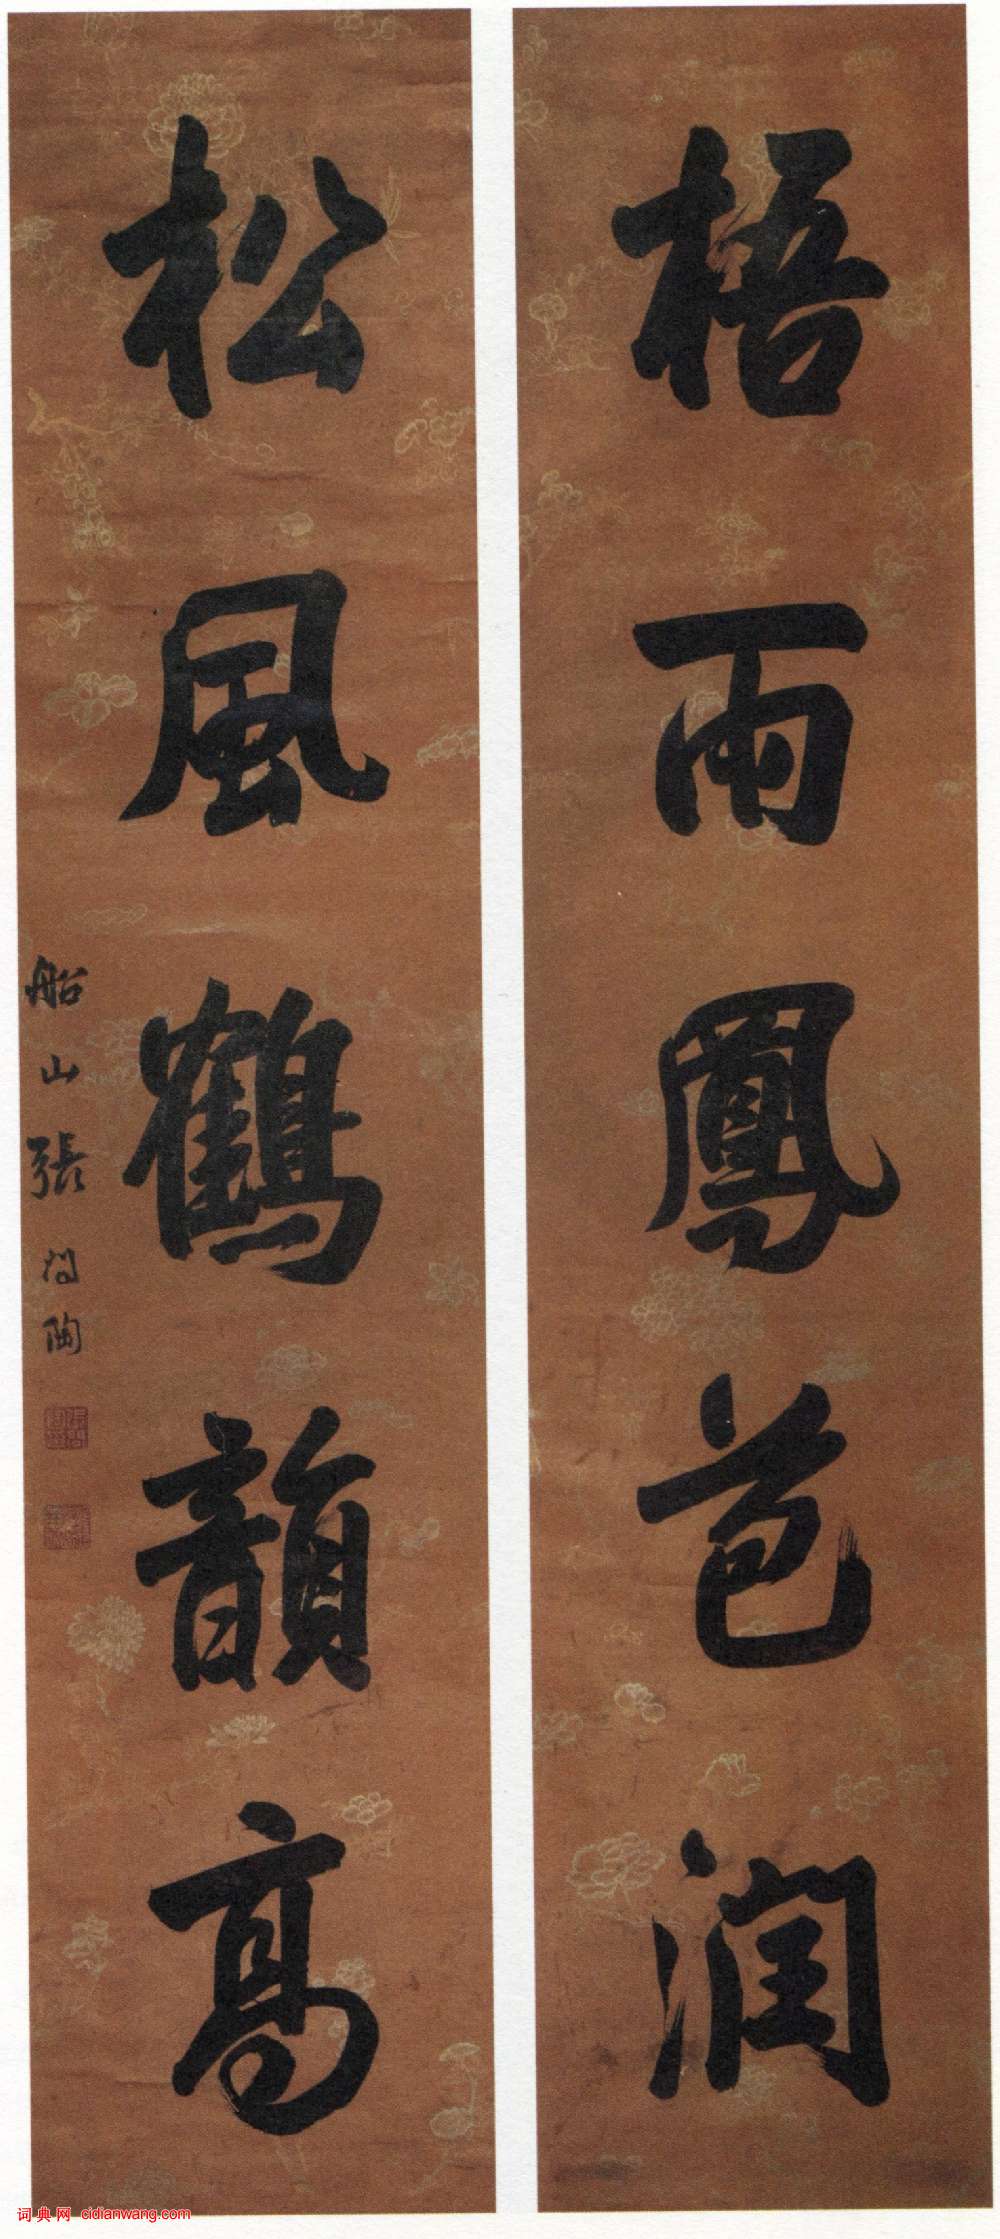 梧雨鳳苞潤
松風鶴韻高
船山張問陶
词典网 cidianwang.com